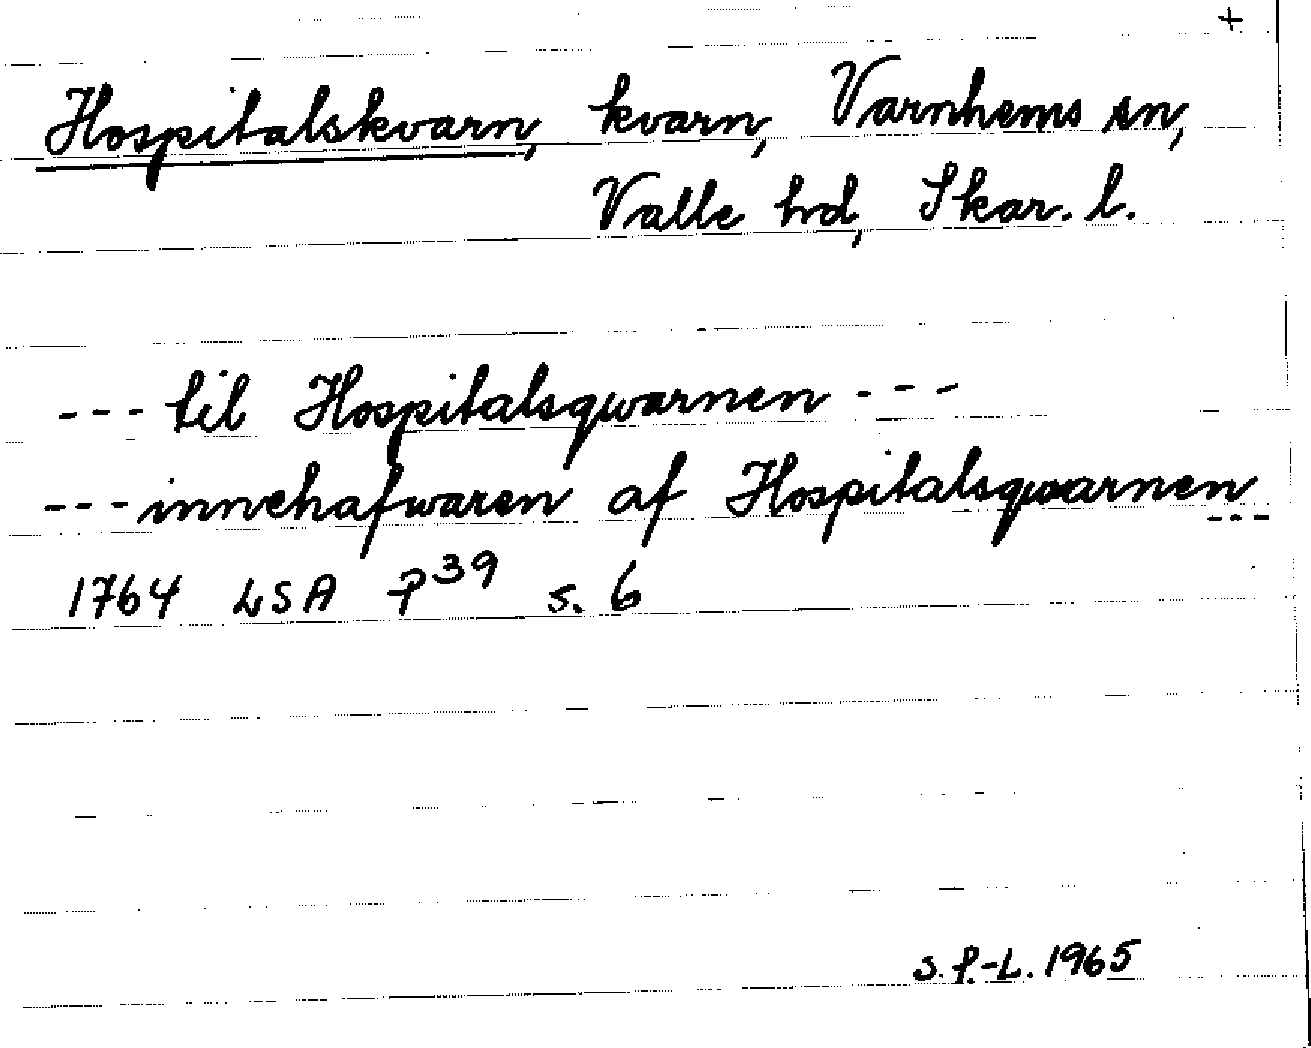 +
Hospitalskvarn, kvarn, Varnhems sn,
Valle hd, Skar. l.
--- til Hospitalsqwarnen ---
--- innehafwaren af Hospitalsqwarnen ---
1764 LSA P39 s. 6
S.P.-L. 1965